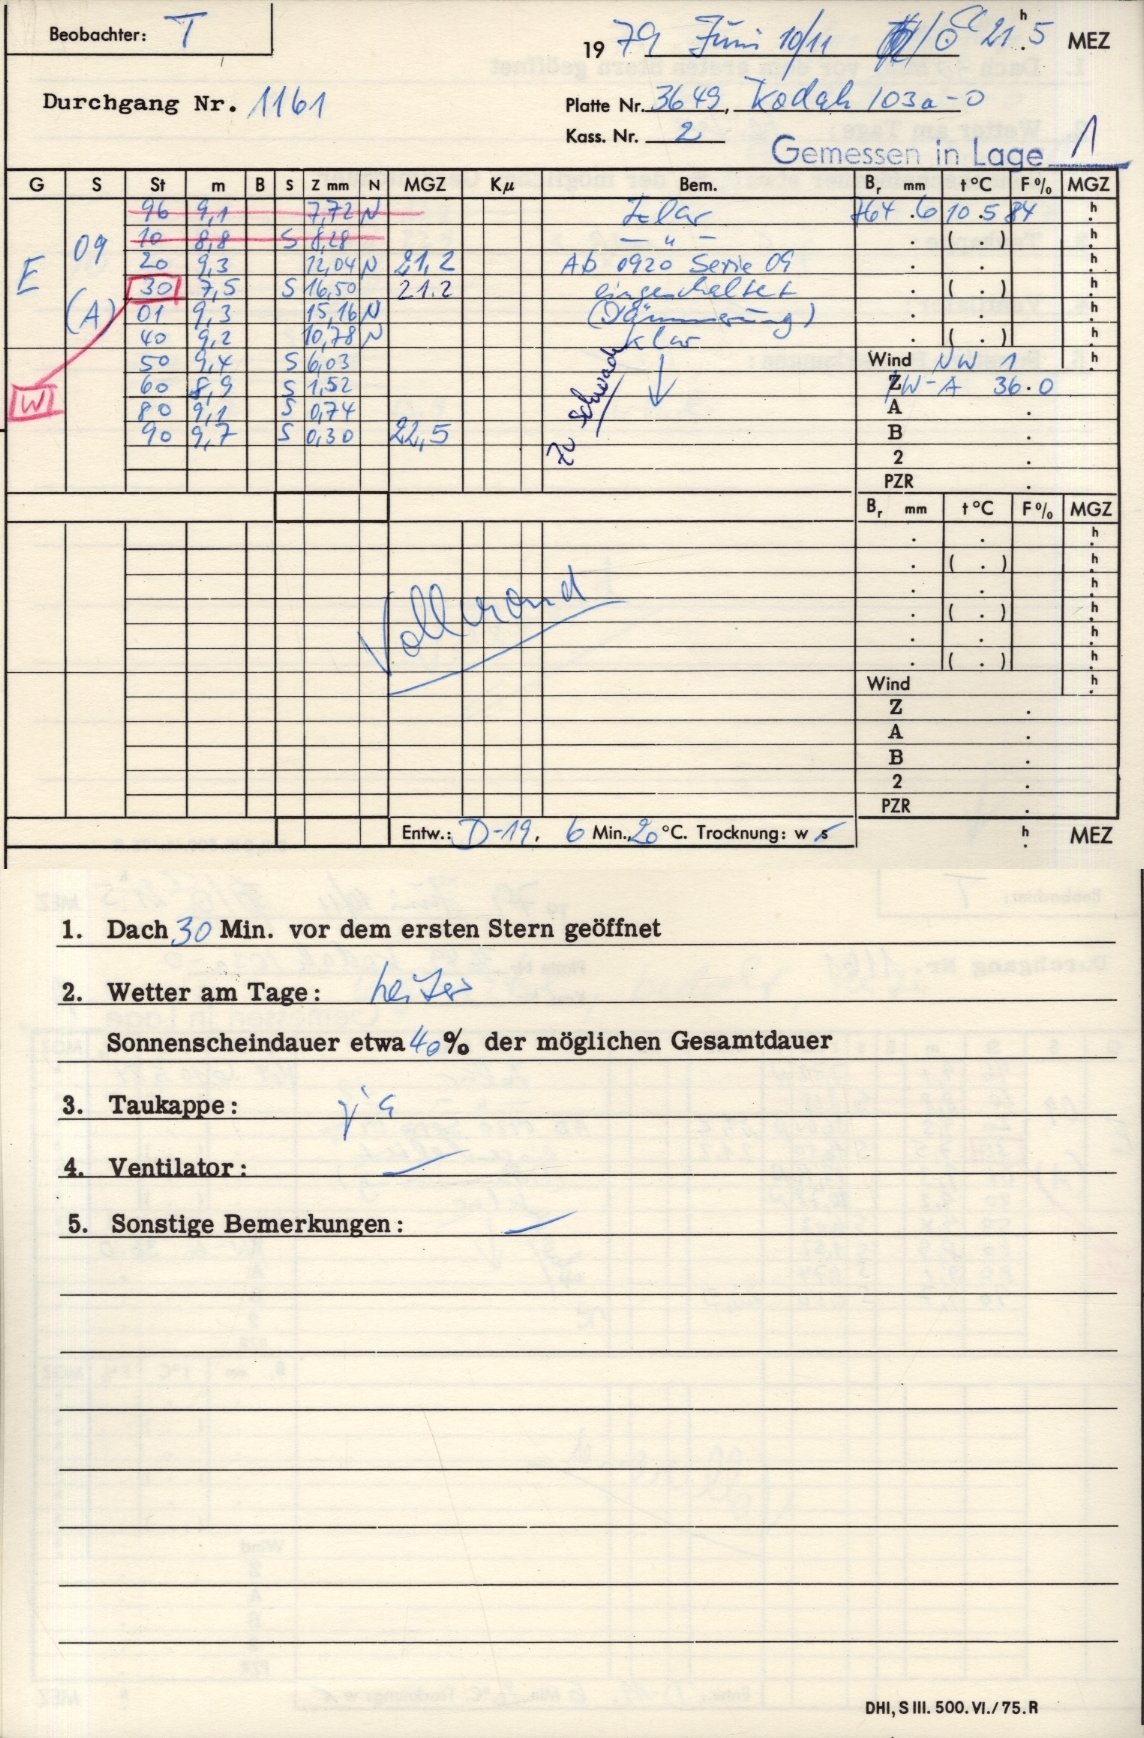 Beobachter: T
19 79 Juni 10/11 21h.5 MEZ
Durchgang Nr. 1161
Platte Nr. 3649, Kodak 103a-O
Kass. Nr. 2
Gemessen in Lage 1
G S St m B S Z mm N MGZ Kμ Bem. Br mm t °C F % MGZ
96 9,1 7,72 N klar 764 .6 10.5 84 h
10 8,8 S 8,28 — " — . ( . ) h
E 09 20 9,3 12,04 N 21,2 Ab 0920 Serie 09 . . h
30 7,5 S 16,50 21.2 eingeschaltet . ( . ) h
(A) 01 9,3 15,16 N (Dämmerung) . . h
40 9,2 10,78 N klar . ( . ) h
50 9,4 S 6,03 Wind NW 1 h
60 8,9 S 1,52 Z W-A 36.0
W 80 9,1 S 0,74 A .
90 9,7 S 0,30 22,5 zu B .
2 .
PZR .
Br mm t °C F % MGZ
. . h
. ( . ) h
. . h
. ( . ) h
Vollmond
. . h
. ( . ) h
Wind h
Z .
A .
B .
2 .
PZR .
Entw.: D-19, 6 Min., 20 °C. Trocknung: w s h. MEZ
1. Dach 30 Min. vor dem ersten Stern geöffnet
2. Wetter am Tage: heiter
Sonnenscheindauer etwa 40% der möglichen Gesamtdauer
3. Taukappe: ja
4. Ventilator: —
5. Sonstige Bemerkungen: —
DHI, S III. 500. VI./75. R